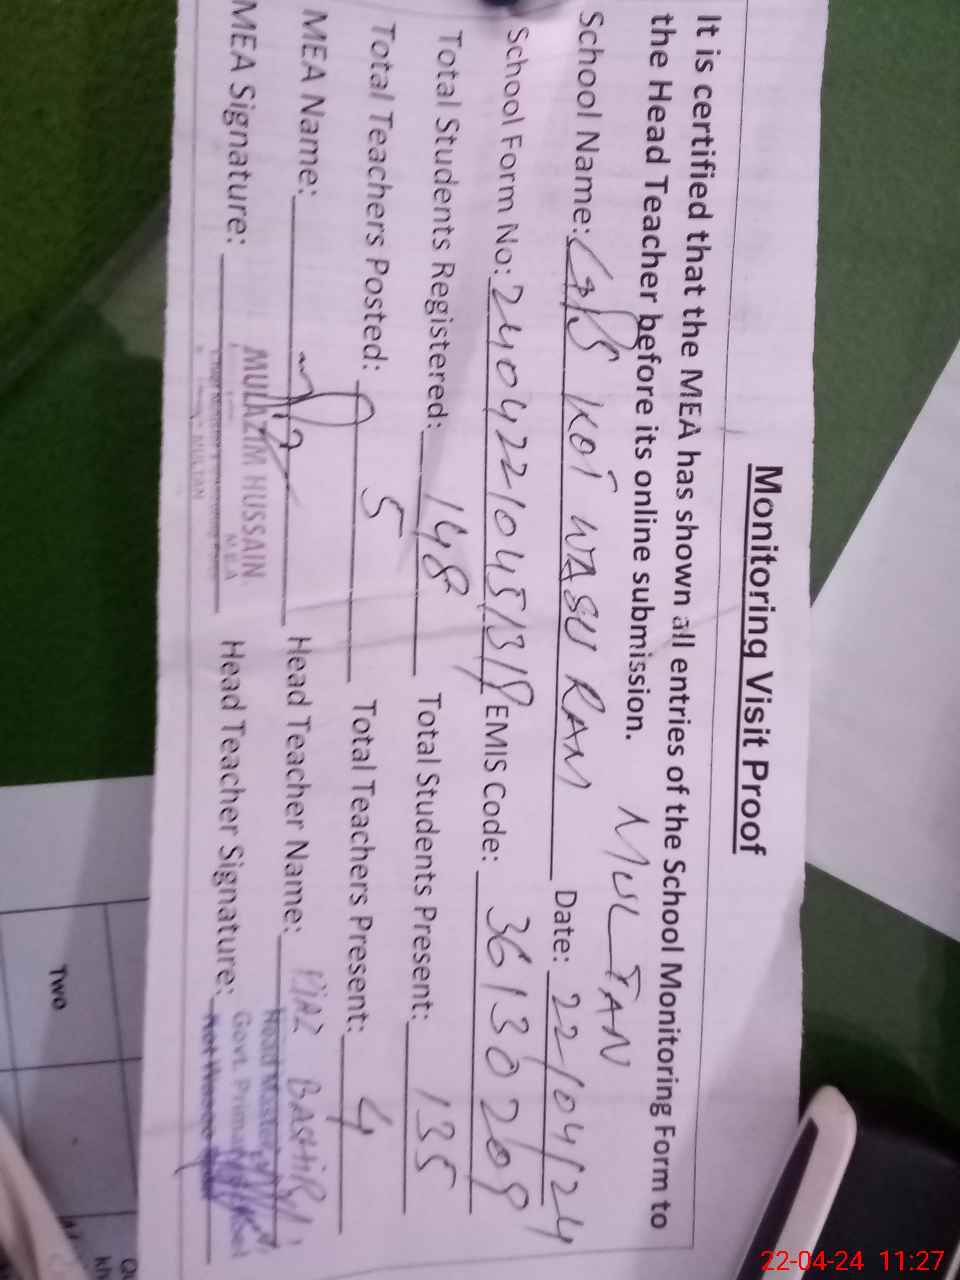 Monitoring Visit Proof
It is certified that the MEA has shown all entries of the School Monitoring Form to
the Head Teacher before its online submission. MULTAN
School Name: G/PS KOT WASU RAM Date: 22/04/24
School Form No: EMIS Code: 36130209
Total Students Registered: 148 Total Students Present: 135
Total Teachers Posted: 5 Total Teachers Present: 4
MEA Name: Head Teacher Name: BASHIR
MEA Signature: MULAZIM HUSSAIN Head Teacher Signature:
M.E.A
MULTAN
Head Master
Govt. Primary
Two
22-04-24 11:27